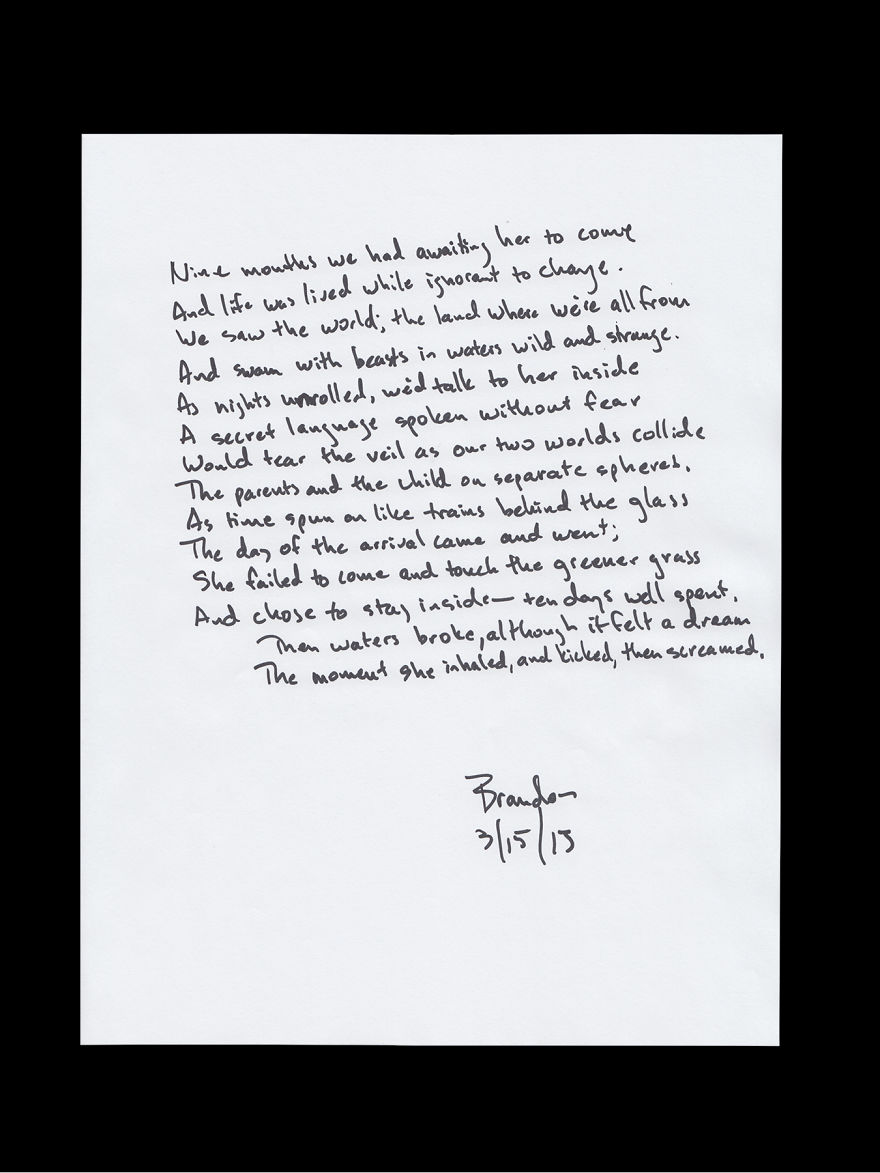 Nine months we had awaiting her to come
And life was lived while ignorant to change.
We saw the world; the land where we're all from
And swam with beasts in waters wild and strange.
As nights unrolled, we'd talk to her inside
A secret language spoken without fear
Would tear the veil as our two worlds collide
The parents and the child on separate spheres.
As time spun on like trains behind the glass
The day of the arrival came and went;
She failed to come and touch the greener grass
And chose to stay inside— ten days well spent.
Then waters broke, although it felt a dream
The moment she inhaled, and kicked, then screamed.
Brandon
3/15/15